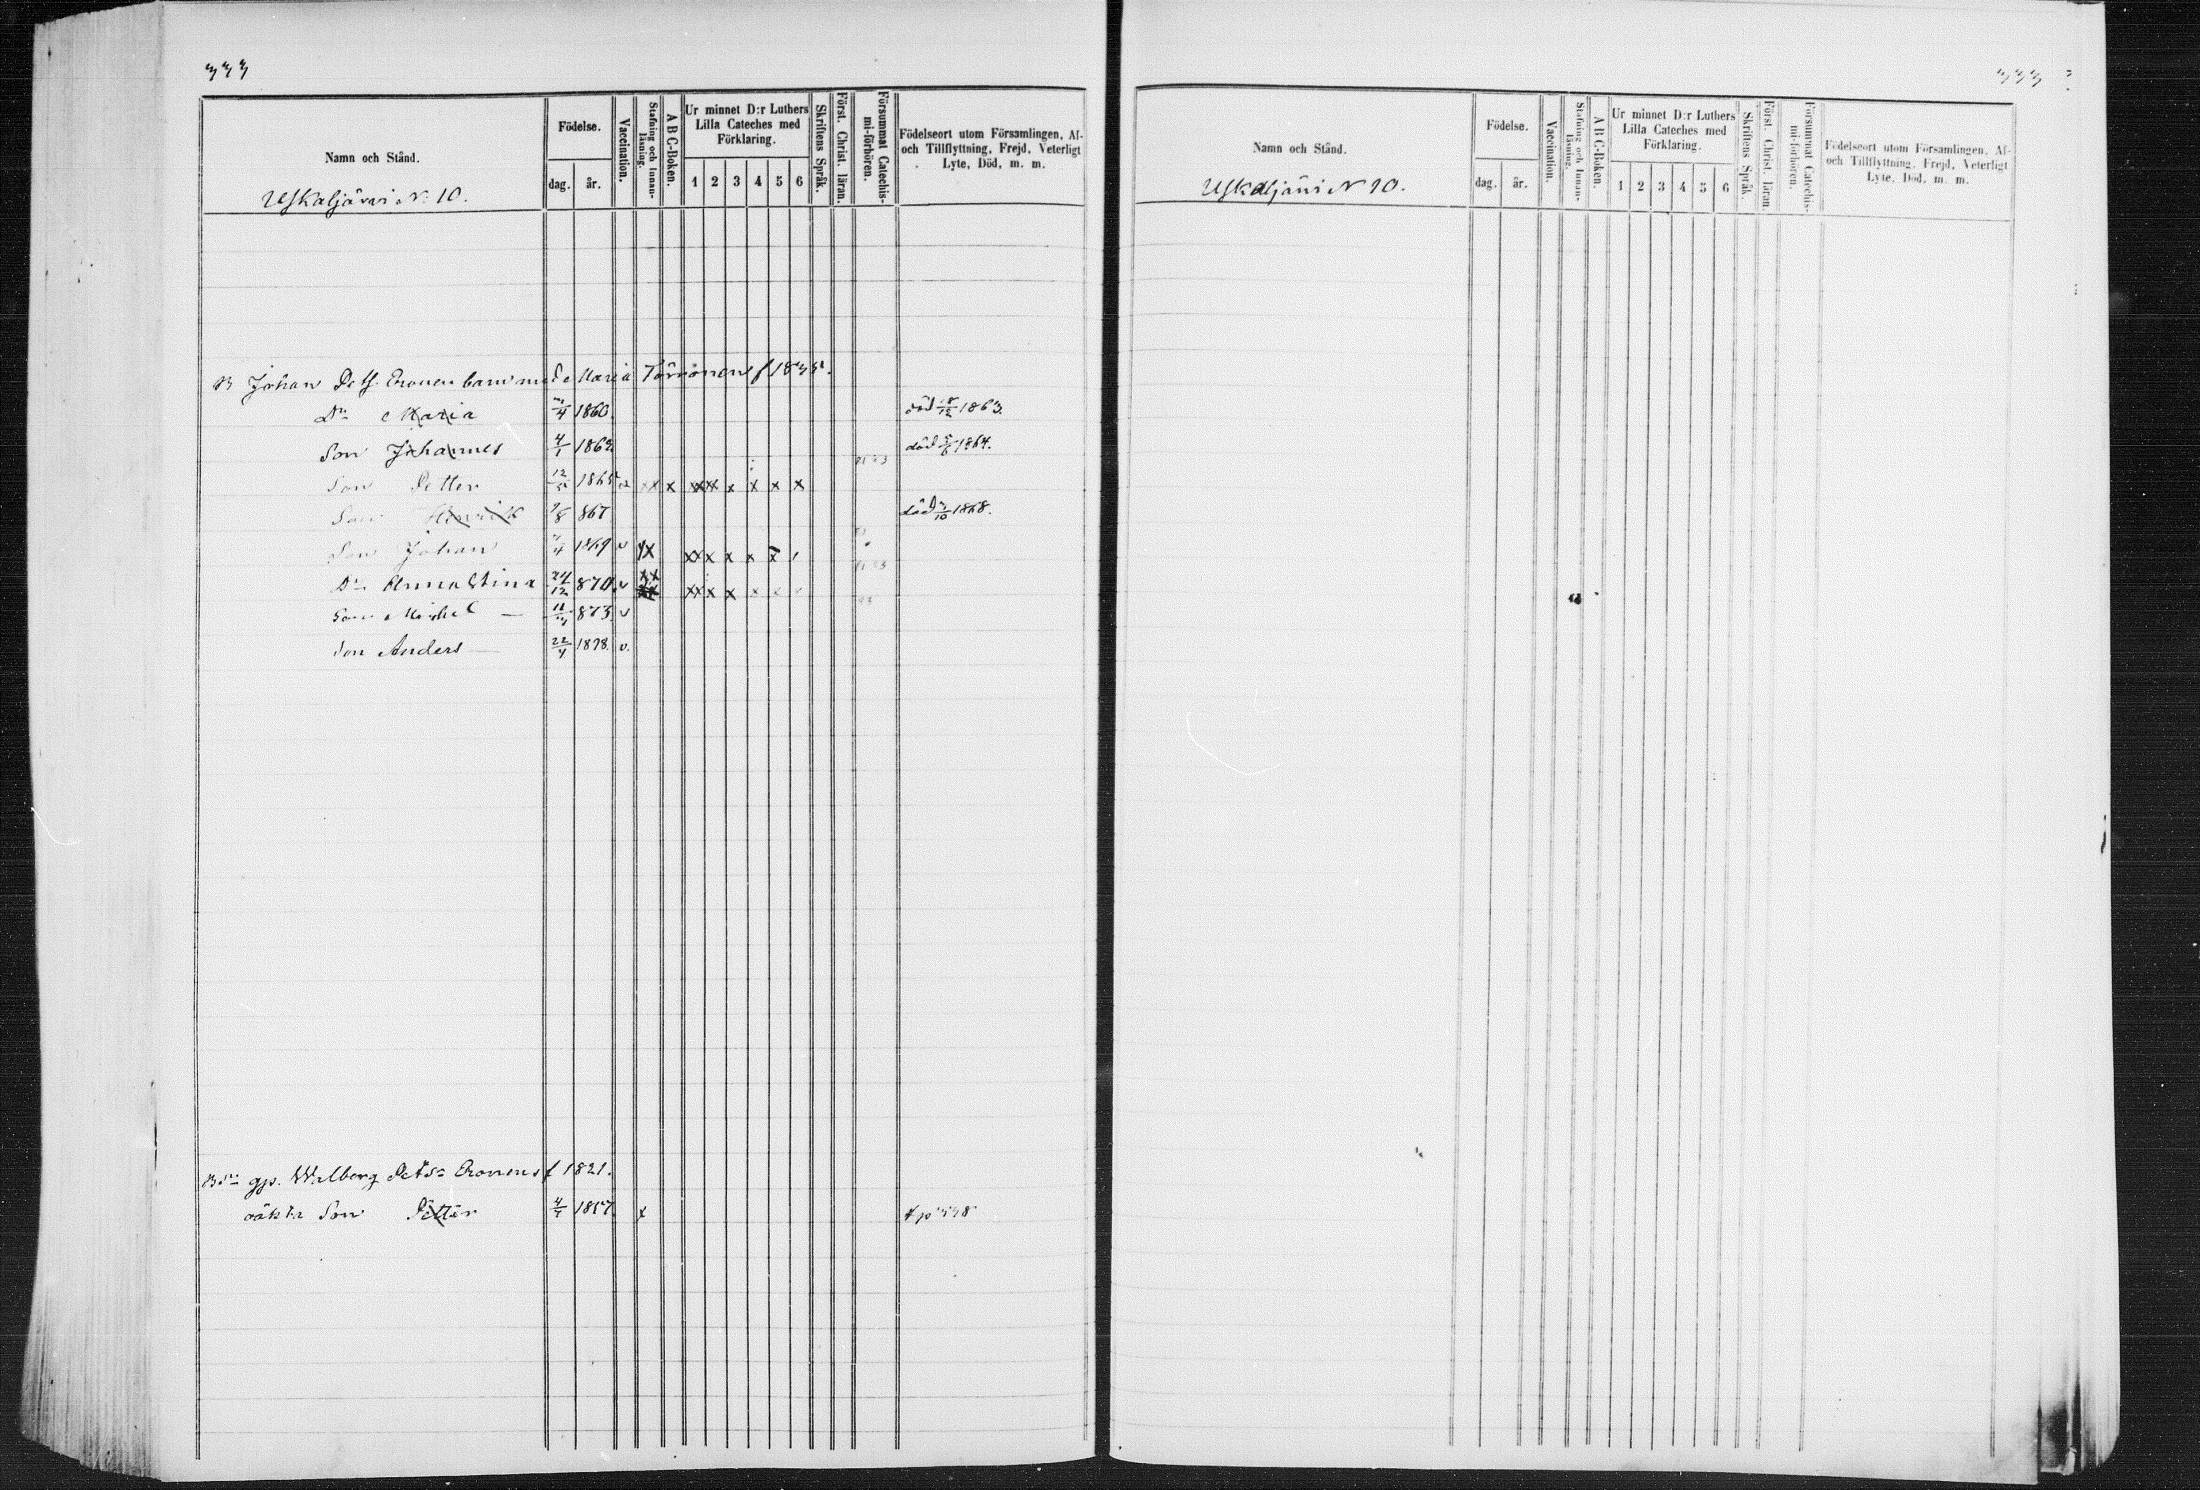 333
Namn och Stånd.
Uskaljärvi N:10.
Födelse.
dag.
år.
Vaccination.
Stafning och Innanläsning.
A B C-Boken.
Ur minnet D:r Luthers
Lilla Cateches med
Förklaring.
1 2 3 4 5 6
Skriftens Språk.
Först. Christ. läran.
Försummat Catechis-
mi-förhören.
Födelseort utom Församlingen, Af-
och Tillflyttning, Frejd, Veterligt
Lyte, Död, m. m.
B Johan Petss. Eronen barn med Maria Törrönen f 1835.
Dr Maria 1860. död 1863.
Son Johannes 4/1 1862 död 1864.
Son Petter 12/5 1865 v xx x xxx x x x x
Son Henrik 867 död 1868.
Son Johan 1869 v xx xx x x x x
Dr Anna Stina 24/12 870 v xx xx x x x
Son Michel — 873 v
Son Anders — 22/4 1878. v.
gp. Walborg Petsdr Eronen f 1821.
oäkta Son Petter 1857. x
333
Namn och Stånd.
Uskaljärvi N 10.
Födelse.
dag.
år.
Vaccination.
Stafning och Innanläsning.
A B C-Boken.
Ur minnet D:r Luthers
Lilla Cateches med
Förklaring.
1 2 3 4 5 6
Skriftens Språk.
Först. Christ. läran
Försummat Catechis-
mi-förhören.
Födelseort utom Församlingen, Af-
och Tillflyttning, Frejd, Veterligt
Lyte, Död, m. m.